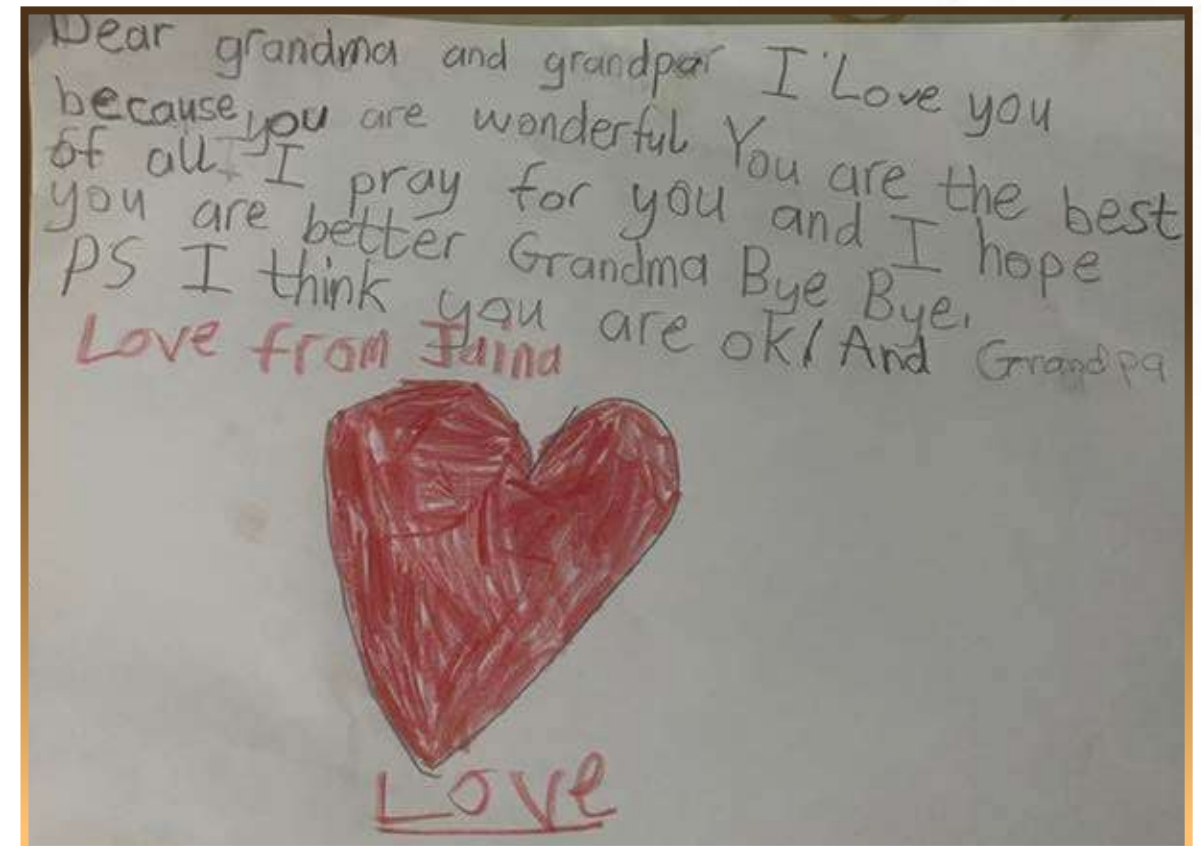 Dear grandma and grandpar I Love you
because you are wonderful You are the best
of all I pray for you and I hope
you are better Grandma Bye Bye.
PS I think you are ok! And Grandpa
Love from Jaina
Love